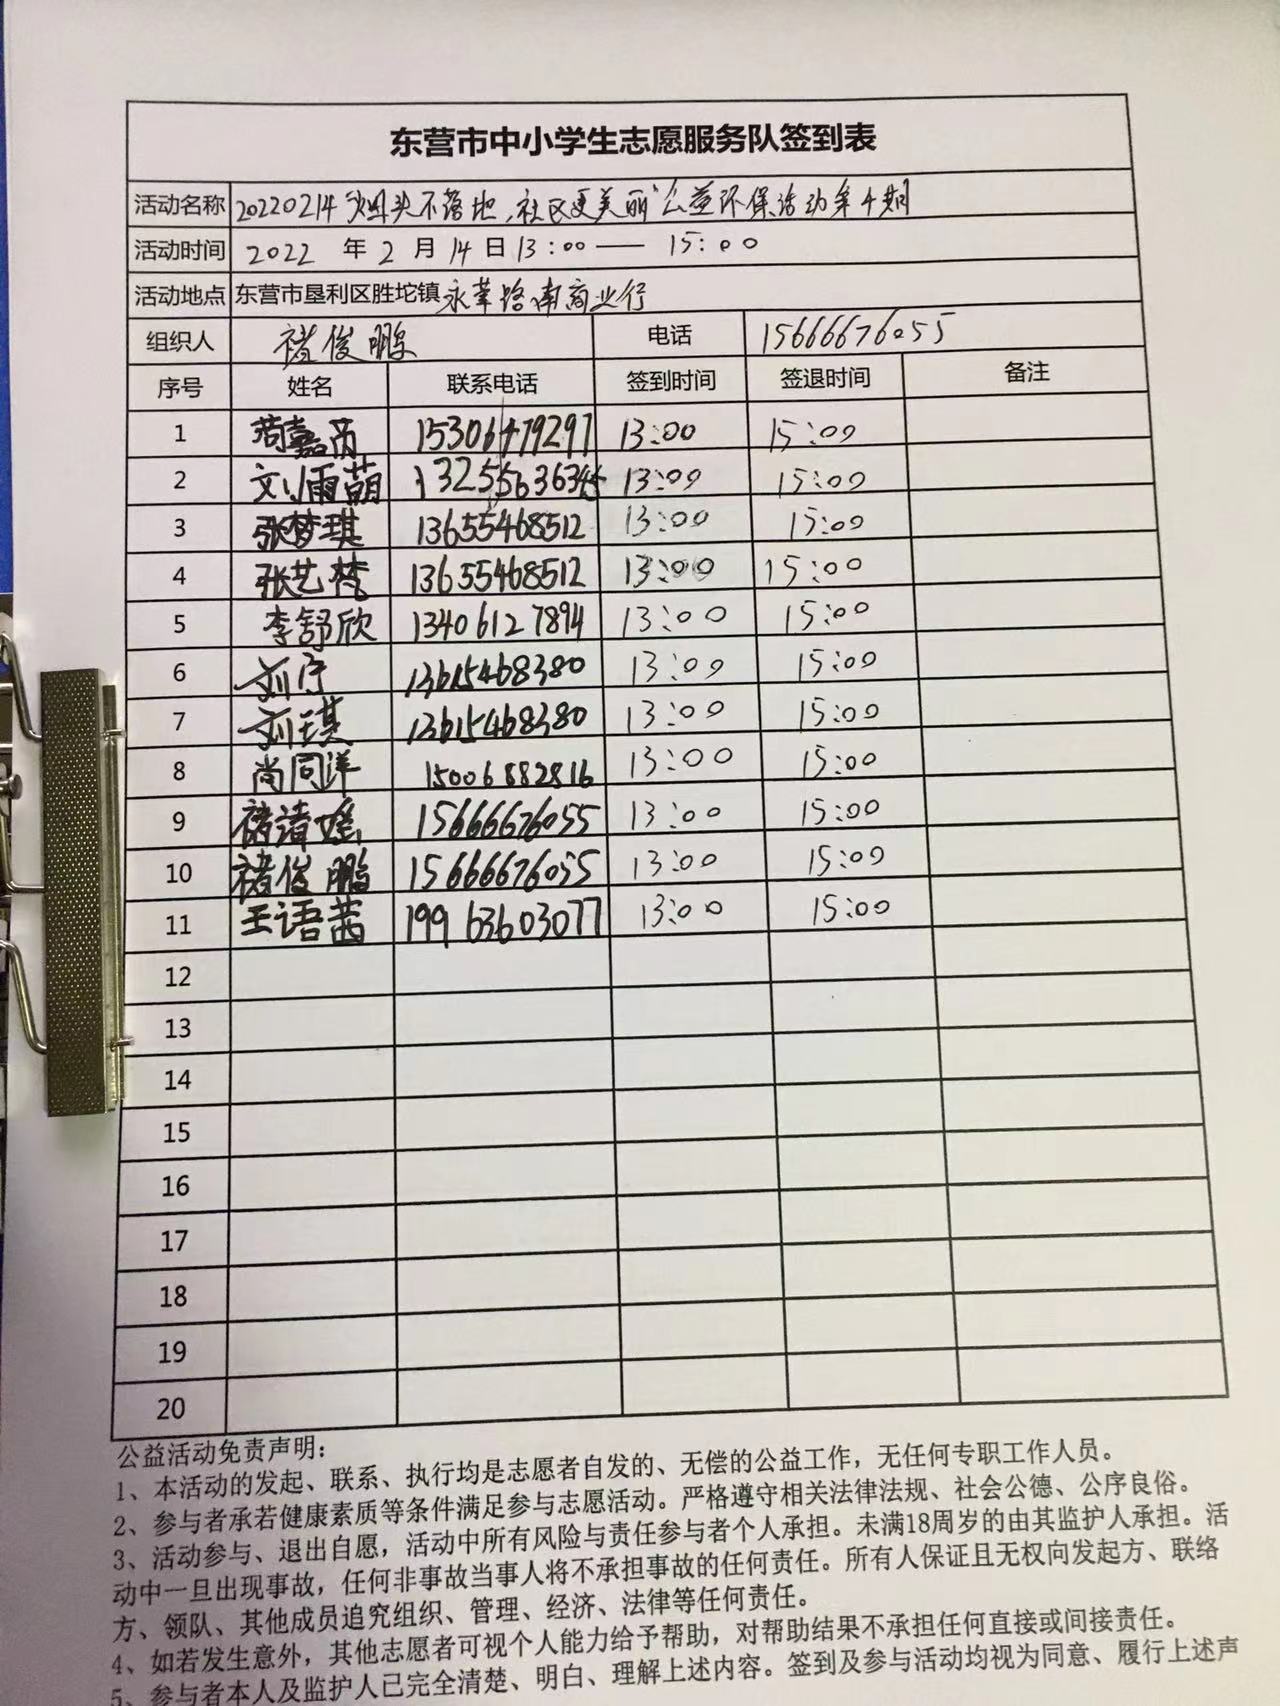 东营市中小学生志愿服务队签到表
活动名称 20220214“烟头不落地,社区更美丽”公益环保活动第4期
活动时间 2022 年 2 月 14 日 13:00 —— 15:00
活动地点 东营市垦利区胜坨镇永莘路南商业行
组织人 褚俊鹏 电话 15666676055
序号 姓名 联系电话 签到时间 签退时间 备注
1 嘉芮 15306479297 13:00 15:00
2 刘雨萌 13255636345 13:00 15:00
3 张梦琪 13655468512 13:00 15:00
4 张艺梵 13655468512 13:00 15:00
5 李舒欣 13406127894 13:00 15:00
6 刘宁 13615468380 13:00 15:00
7 刘琪 13615468380 13:00 15:00
8 尚同洋 15006882816 13:00 15:00
9 褚清瑶 15666676055 13:00 15:00
10 褚俊鹏 15666676055 13:00 15:00
11 王语茜 19963603077 13:00 15:00
12
13
14
15
16
17
18
19
20
公益活动免责声明:
1、本活动的发起、联系、执行均是志愿者自发的、无偿的公益工作，无任何专职工作人员。
2、参与者承若健康素质等条件满足参与志愿活动。严格遵守相关法律法规、社会公德、公序良俗。
3、活动参与、退出自愿，活动中所有风险与责任参与者个人承担。未满18周岁的由其监护人承担。活
动中一旦出现事故，任何非事故当事人将不承担事故的任何责任。所有人保证且无权向发起方、联络
方、领队、其他成员追究组织、管理、经济、法律等任何责任。
4、如若发生意外，其他志愿者可视个人能力给予帮助，对帮助结果不承担任何直接或间接责任。
5、参与者本人及监护人已完全清楚、明白、理解上述内容。签到及参与活动均视为同意、履行上述声